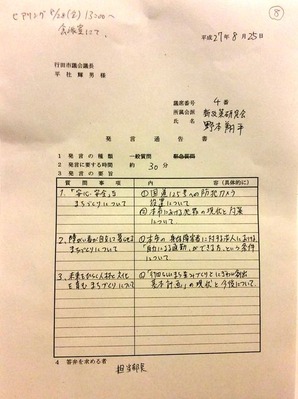 ヒアリング 8/28(金) 13:00〜
会派室にて。
⑧
平成27年8月25日
行田市議会議長
平社輝男様
議席番号 4番
所属会派 新政策研究会
氏名 野本翔平
発言通告書
1 発言の種類 一般質問
2 発言に要する時間 約 30分
3 発言の要旨
質問事項 内容(具体的に)
1.「安心・安全な
まちづくりについて
①国道125号への防犯カメラ
設置について
②本市における犯罪の現状と対策
について
2.障がい者が自立して暮らせる
まちづくりについて
①本市の身体障害者に対する求人における
「自力による通勤ができる方」という条件
について
3.未来をひらく人材と文化
を育むまちづくりについて
①「行田らしいまち並みづくりとにぎわい創出
基本計画」の現状と今後について
4 答弁を求める者
担当部長